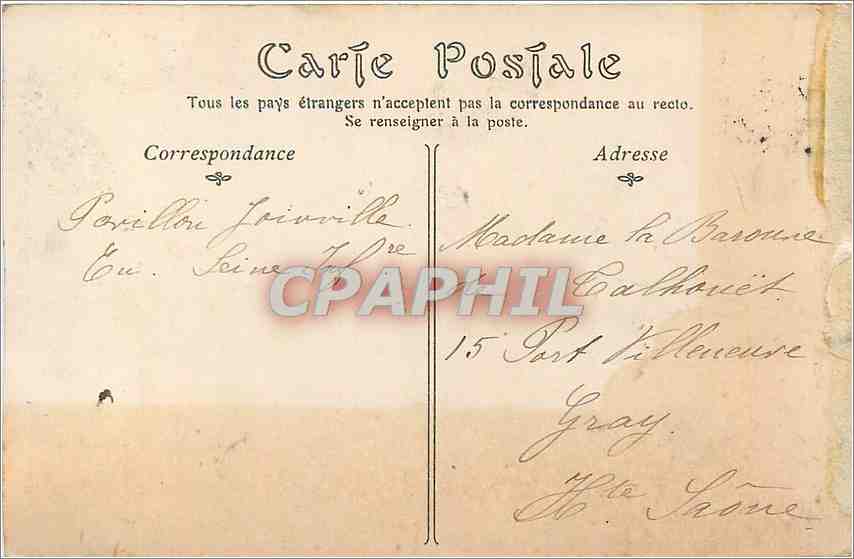 Carte Postale
Tous les pays étrangers n'acceptent pas la correspondance au recto.
Se renseigner à la poste.
Correspondance
Adresse
Pavillon Joinville
Eu. Seine Infre
Madame la Baronne
de Talhouët
15 Port Villeneuve
Gray.
Hte Saône
CPAPHIL